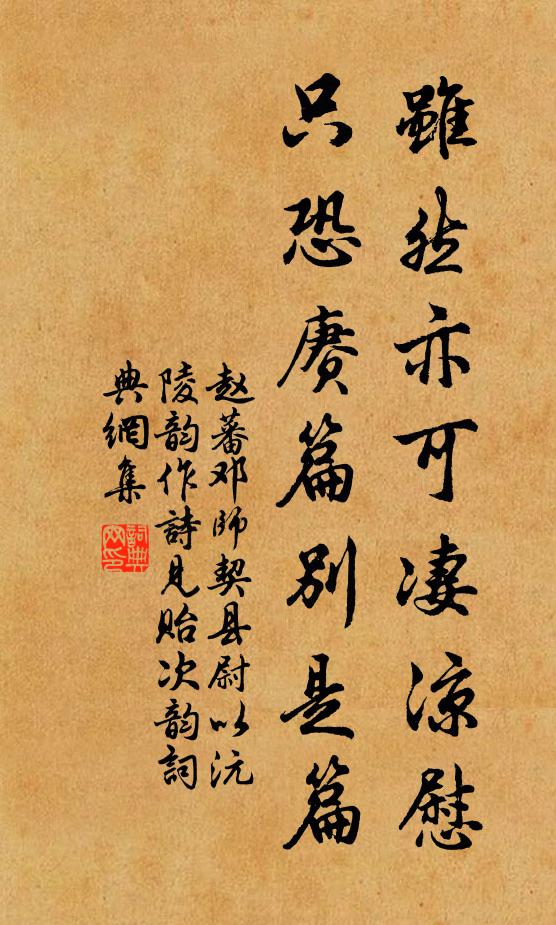 雖然亦可凄涼慰
只恐賡篇別是篇
赵蕃邓師契县尉以沅
陵韵作詩見貽次韵詞
典網集
詞典
网印